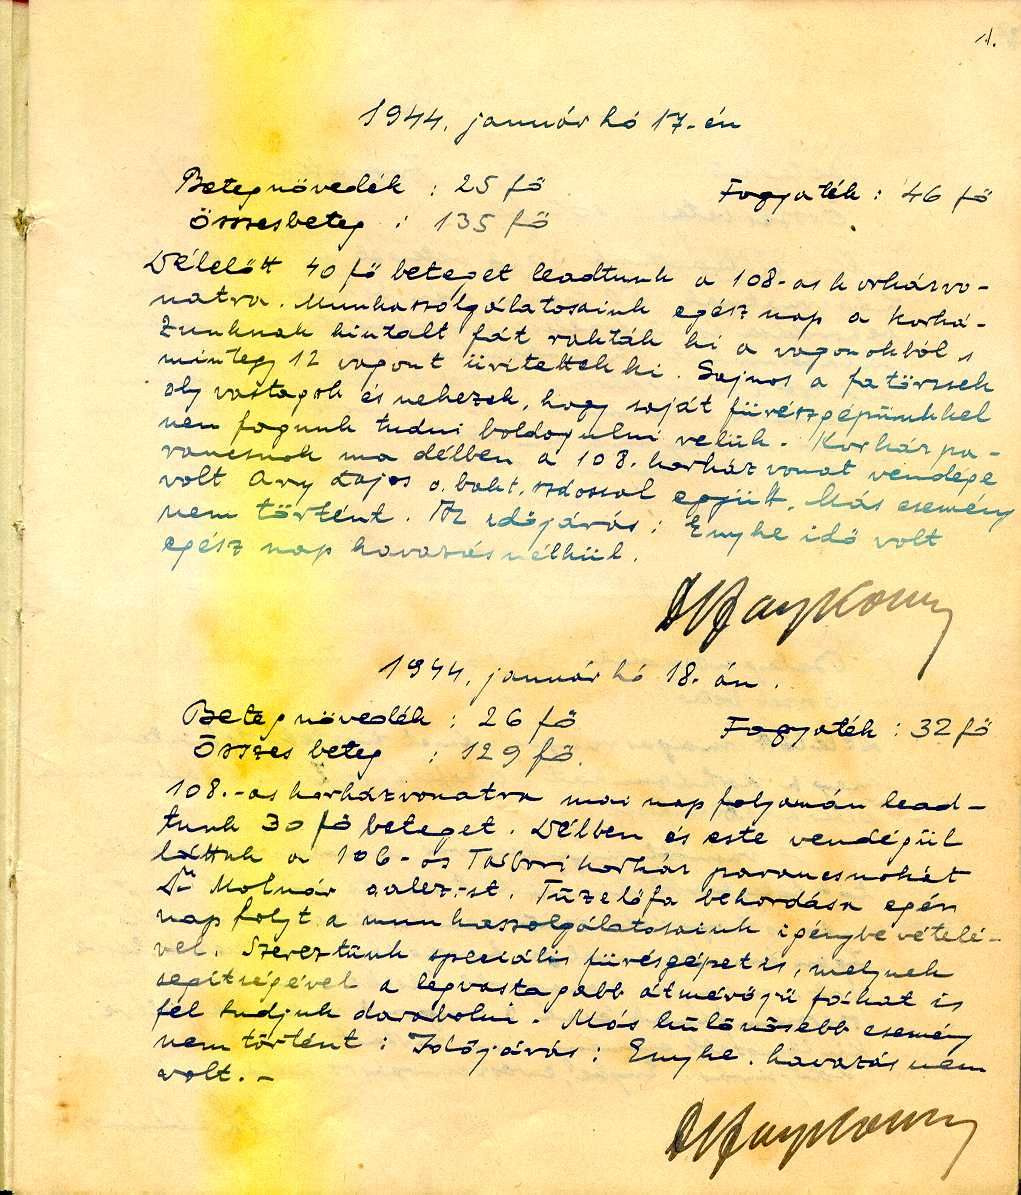 1.
1944. január hó 17-én
Betegnövedék : 25 fő Fogyaték : 46 fő
Összesbeteg : 135 fő
Délelőtt 40 fő beteget leadtunk a 108-as kórházvo-
natra. Munkaszolgálatosaink egész nap a kórhá-
zunknak kiutalt fát rakták ki a vagonokból s
mintegy 12 vagont ürítettek ki. Sajnos a fatörzsek
oly vastagok és nehezek, hogy saját fürészgépünkkel
nem fogunk tudni boldogulni velük. Kórházpa-
rancsnok ma délben a 108. kórházvonat vendége
volt Ary Lajos o. száossal együtt. Más esemény
nem történt. Az időjárás: Enyhe idő volt
egész nap havazás nélkül.
1944. január hó 18.-án.
Betegnövedék : 26 fő Fogyaték : 32 fő
Összes beteg : 129 fő.
108.-as kórházvonatra mai nap folyamán lead-
tunk 30 fő beteget. Délben és este vendégül
láttuk a 106-os Tábori kórház parancsnokát
Dr Molnár alez.-st. Tüzelőfa behordása egész
nap folyt a munkaszolgálatosaink igénybevételé-
vel. Szereztünk speciális fürészgépet is, melynek
segítségével a legvastagabb átmérőjű fákat is
fel tudjuk darabolni. Más különösebb esemény
nem történt: Időjárás: Enyhe. havazás nem
volt. -